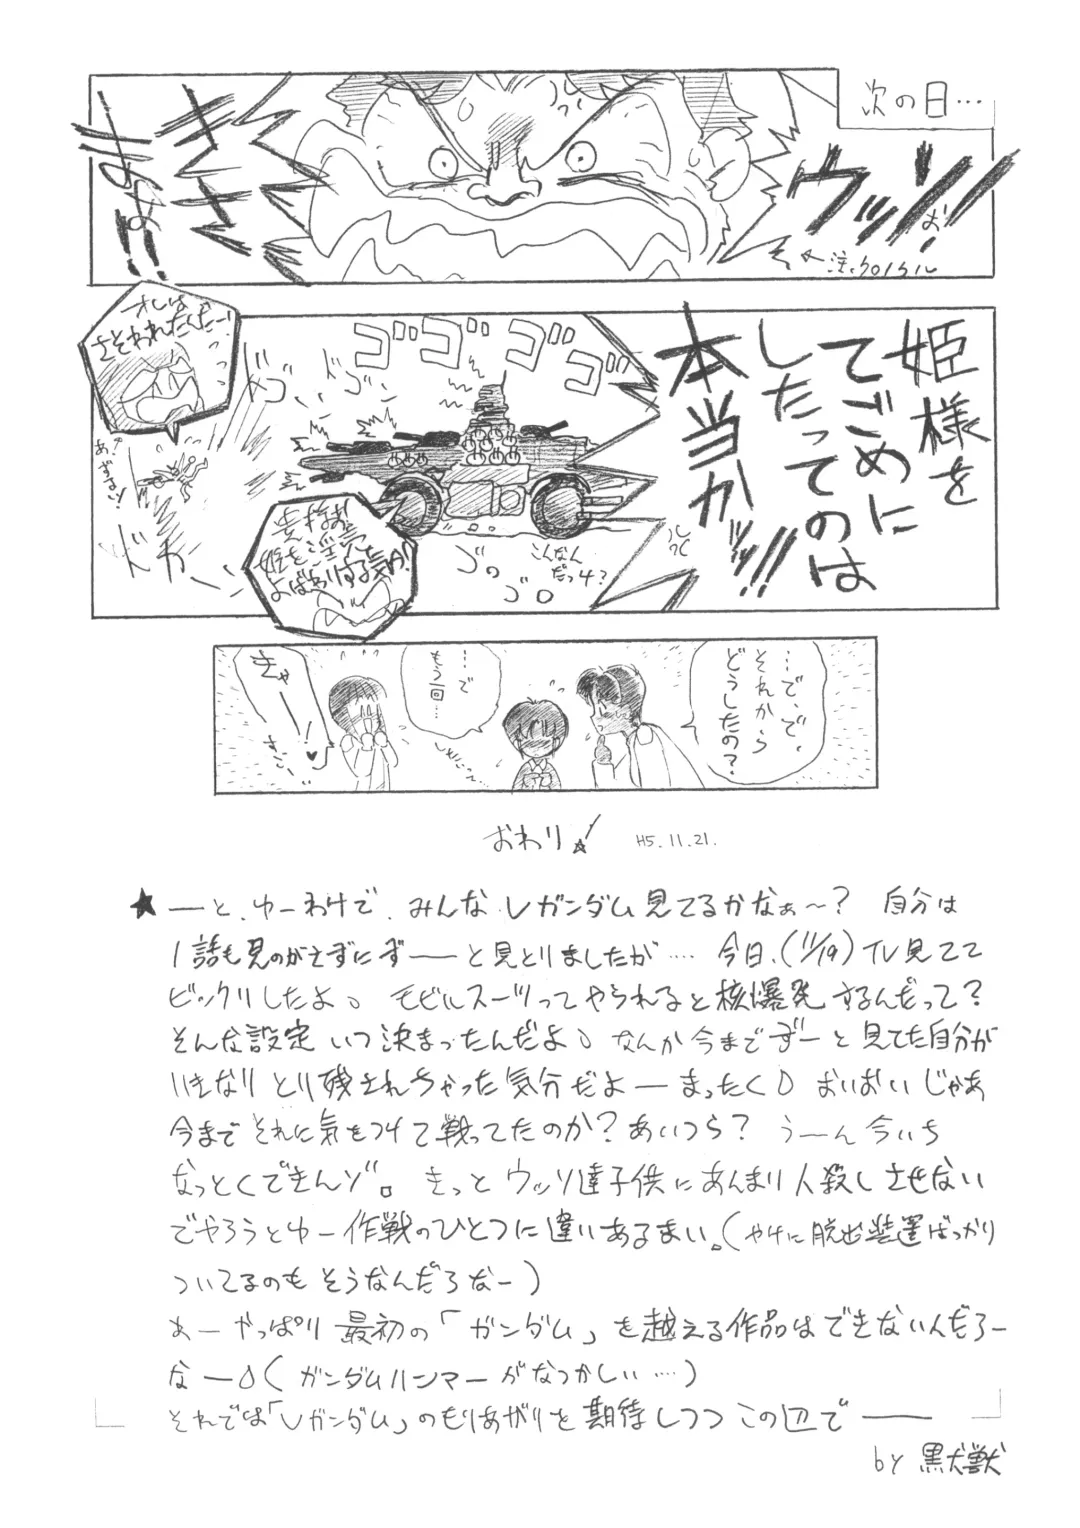 次の日…
ウッソ!
おのれ
きさまぁ!!
←注.クロノクル
姫様を
てごめに
したってのは
本当かぁ!!
ゴゴゴゴ
オレは
さそわれたんだー!
ドゴ
ドゴ
ドカ
貴様ぁ
姫を淫売
よばわりする気か!
ゴゴゴ
こんなん
だっけ?
…で、で、
それから
どうしたの?
…で
もう1回…
きゃーー!♥
すごーい
おわり! H5.11.21.
★ ーと、ゆーわけで、みんなVガンダム見てるかなぁ〜? 自分は
1話も見のがさずにずーーと見とりましたが…… 今日、(11/19)TV見てて
ビックリしたよ。モビルスーツってやられると核爆発するんだって?
そんな設定いつ決まったんだよ。なんか今までずーと見てた自分が
いきなりとり残されちゃった気分だよーまったく。おいおいじゃあ
今までそれに気をつけて戦ってたのか?あいつら? うーん今いち
なっとくできんゾ。きっとウッソ達子供にあんまり人殺しさせない
でやろうとゆー作戦のひとつに違いあるまい。(やけに脱出装置ばっかり
ついてるのもそうなんだろなー)
ぁーやっぱり最初の「ガンダム」を越える作品はできないんだろー
なー。(ガンダムハンマーがなつかしい……)
それでは「Vガンダム」のもりあがりを期待しつつこの辺でーー
by 黒犬獣